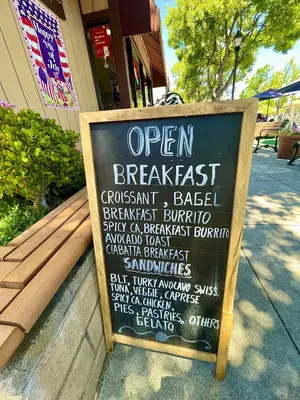 OPEN
BREAKFAST
CROISSANT, BAGEL
BREAKFAST BURRITO
SPICY CA, BREAKFAST BURRITO
AVOCADO TOAST
CIABATTA BREAKFAST
SANDWICHES
BLT, TURKY AVOCAVO SWISS,
TUNA, VEGGIE, CAPRESE
SPICY CA, CHICKEN,
PIES, PASTRIES, OTHERS
GELATO